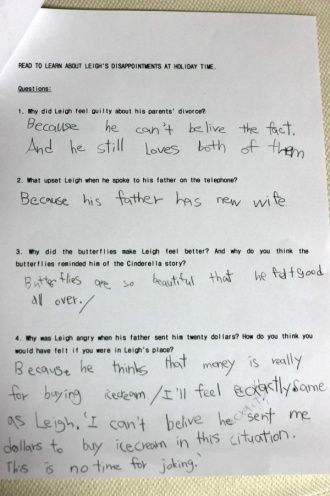 READ TO LEARN ABOUT LEIGH'S DISAPPOINTMENTS AT HOLIDAY TIME.
Questions:
1. Why did Leigh feel guilty about his parents' divorce?
Because he can't belive the fact.
And he still loves both of them
2. What upset Leigh when he spoke to his father on the telephone?
Because his father has new wife
3. Why did the butterflies make Leigh feel better? And why do you think the
butterflies reminded him of the Cinderella story?
Butterflies are so beautiful that he felt good
all over. /
4. Why was Leigh angry when his father sent him twenty dollars? How do you think you
would have felt if you were in Leigh's place?
Because he thinks that money is really
for buying icecream / I'll feel exactly same
as Leigh. 'I can't belive he sent me
dollars to buy icecream in this cituation.
This is no time for joking.'